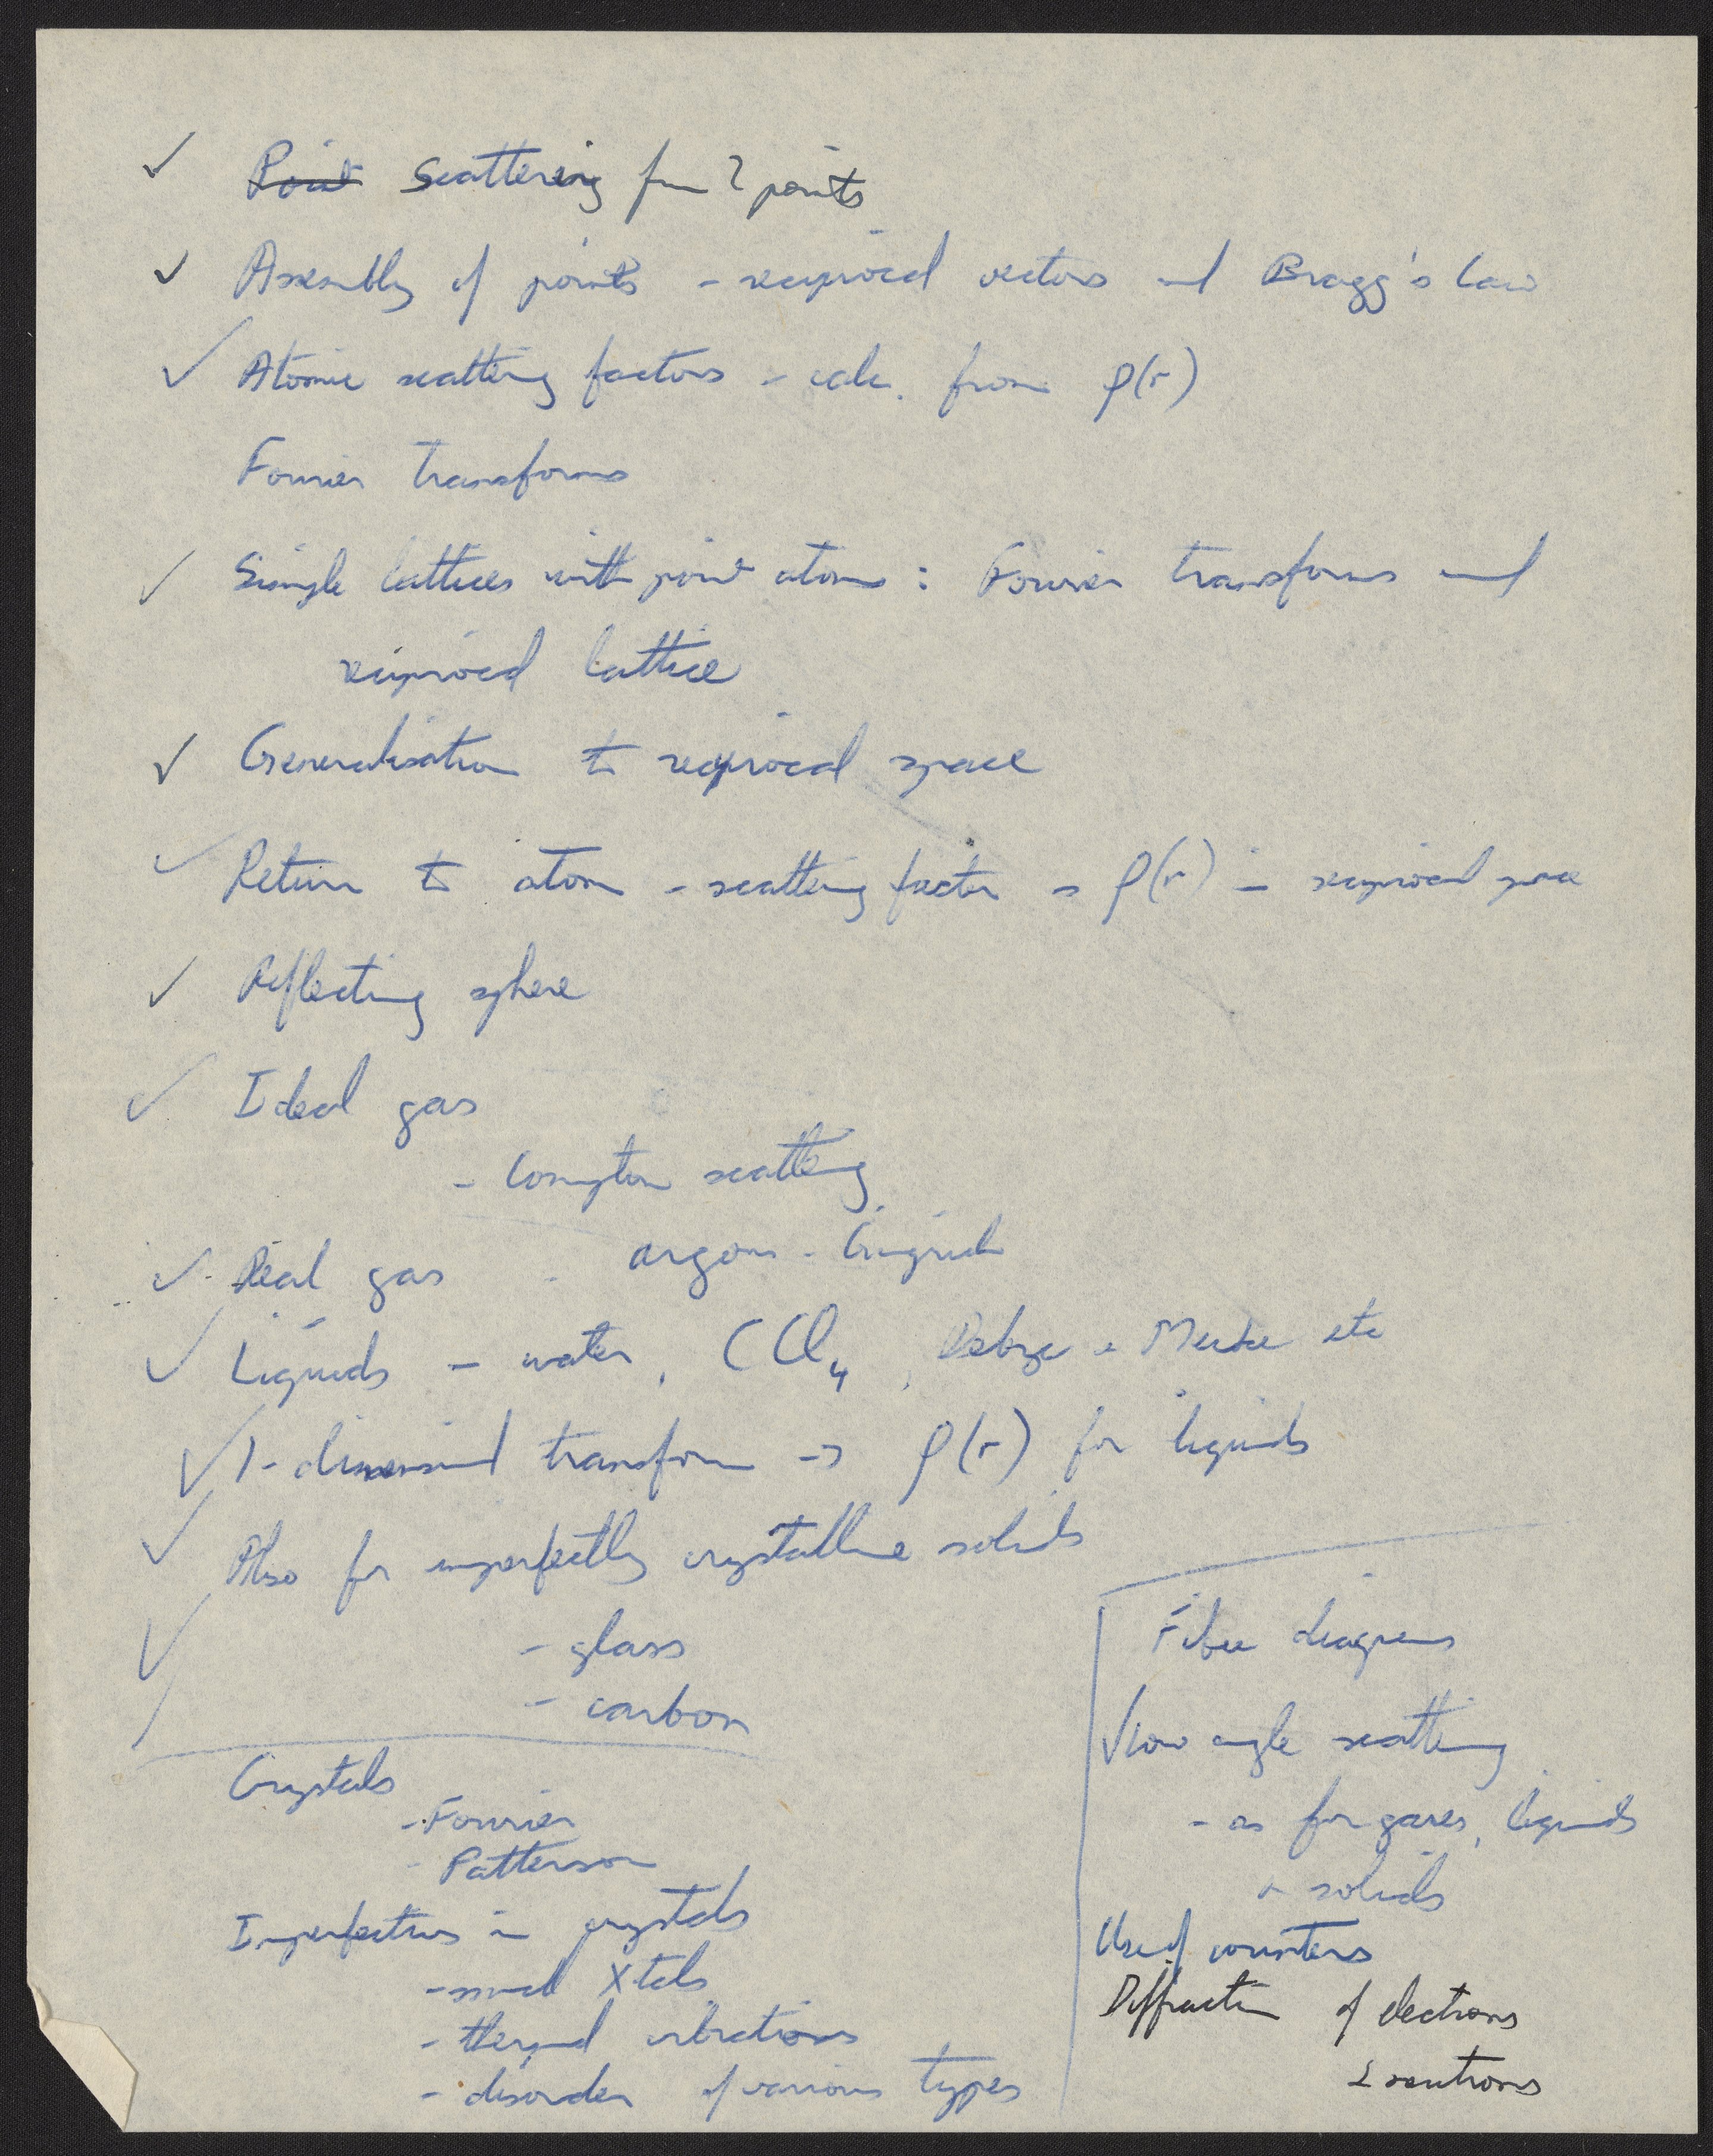 ✓ ~~Point~~ Scattering from 2 points
✓ Assembly of points - reciprocal vectors and Bragg's law
✓ Atomic scattering factors - calc. from ρ(r)
Fourier transforms
✓ Simple lattices with point atoms : Fourier transforms and
reciprocal lattice
✓ Generalisation to reciprocal space
✓ Return to atom - scattering factor = ρ(r) in reciprocal space
✓ Reflecting sphere
✓ Ideal gas
- Compton scattering
argon - Gingrich
✓ Real gas -
✓ Liquids - water, CCl4, Debye & Menke etc
✓ 1-dimensional transform → ρ(r) for liquids
✓ Also for imperfectly crystalline solids
✓ - glass
- carbon
Crystals
- Fourier
- Patterson
Imperfections in crystals
- small Xtals
- thermal vibrations
- disorder of various types
Fibre diagrams
✓ Low angle scattering
- as for gases, liquids
& solids
Use of counters
Diffraction of electrons
& neutrons